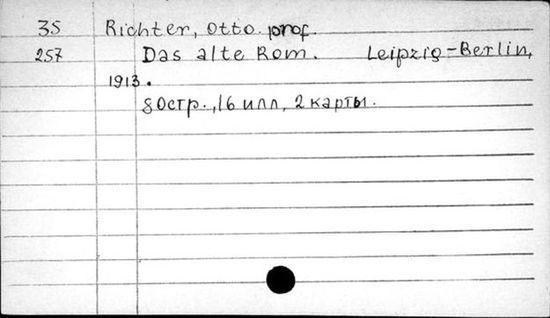 35 Richter, Otto. prof.
257 Das alte Rom. Leipzig-Berlin,
1913.
80стр., 16 илл, 2 карты.